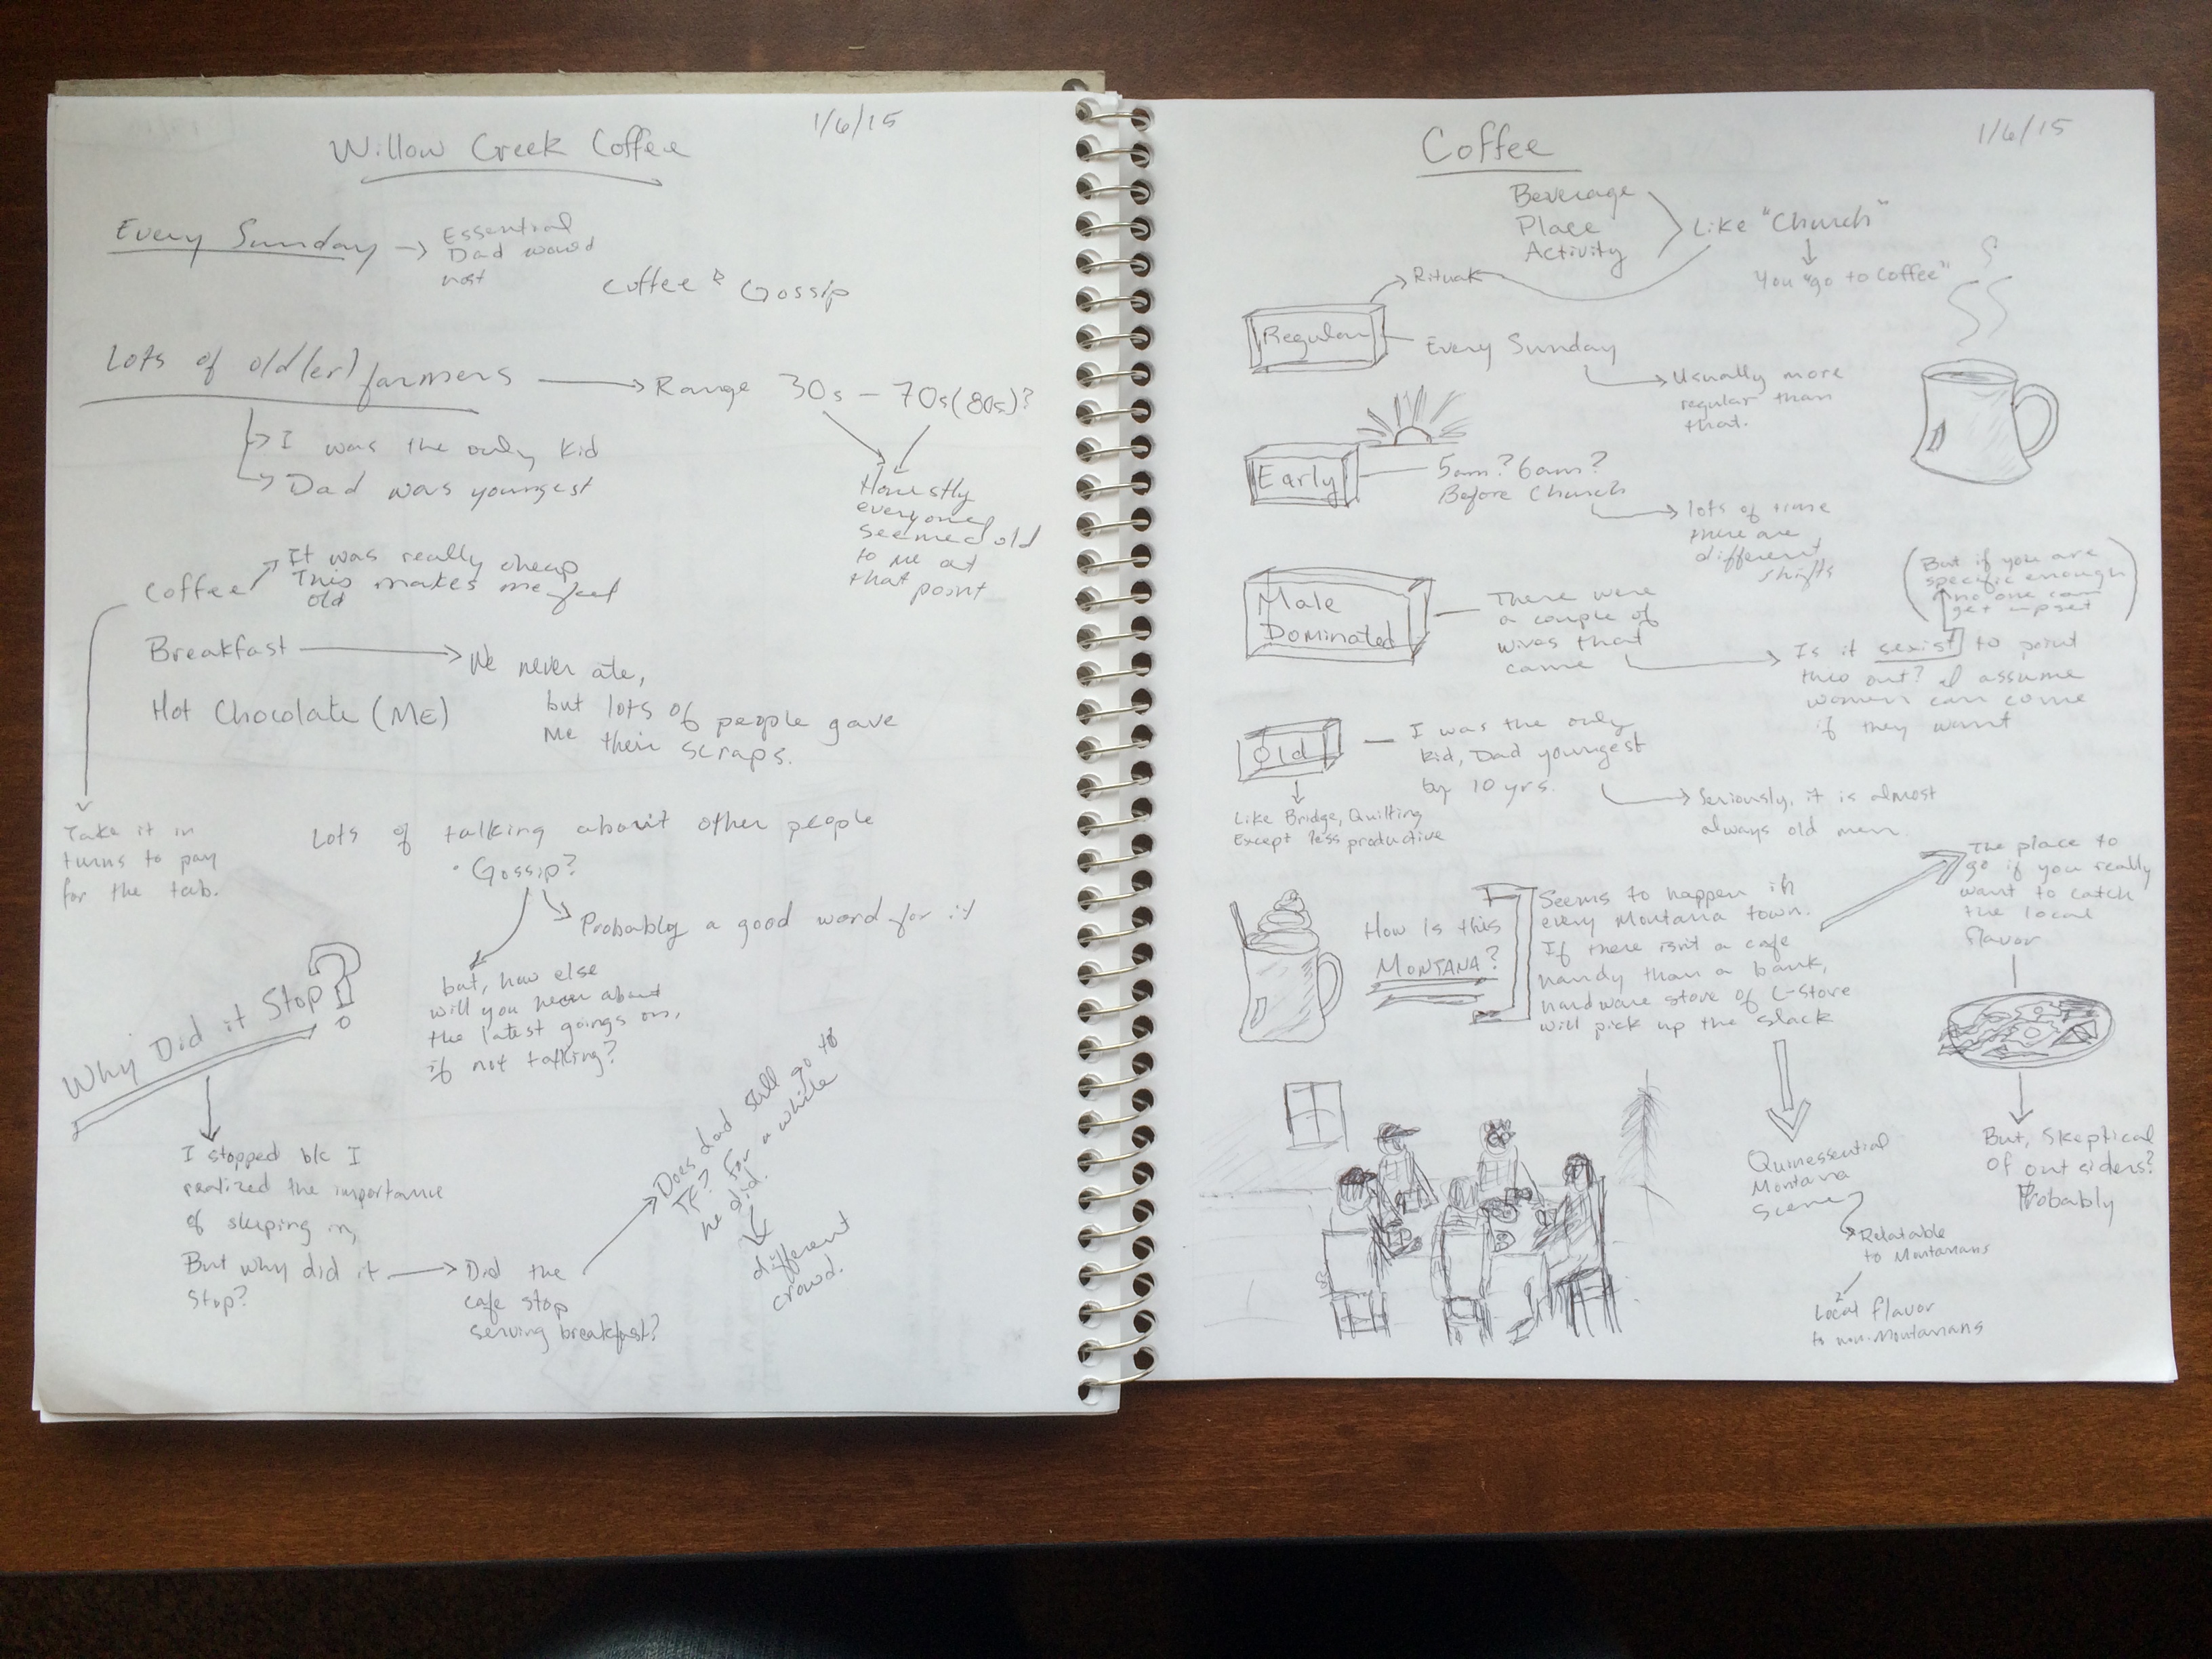 Willow Creek Coffee
1/6/15
Every Sunday
Essential
Dad would
not
Coffee & Gossip
Lots of old(er) farmers
Range 30s - 70s (80s)?
I was the only kid
Dad was youngest
Honestly
everyone
seemed old
to me at
that point
Coffee
It was really cheap
This makes me feel
old
Breakfast
We never ate,
but lots of people gave
me their scraps.
Hot Chocolate (ME)
Take it in
turns to pay
for the tab.
Lots of talking about other people
· Gossip?
Probably a good word for it
but, how else
will you hear about
the latest goings on,
if not talking?
Why Did it Stop?
I stopped b/c I
realized the importance
of sleeping in,
But why did it
Stop?
Did the
cafe stop
serving breakfast?
Does dad still go to
TF? For a while
he did.
different
crowd.
Coffee
1/6/15
Beverage
Place
Activity
Like "Church"
You "go to Coffee"
Ritual
Regular
Every Sunday
Usually more
regular than
that.
Early
5am? 6am?
Before Church
lots of time
there are
different
shifts
Male
Dominated
There were
a couple of
wives that
came
(But if you are
specific enough
no one can
get upset)
Is it sexist to point
this out? I assume
women can come
if they want
Old
I was the only
kid, Dad youngest
by 10 yrs.
Seriously, it is almost
always old men.
Like Bridge, Quilting
Except less productive
How is this
MONTANA?
Seems to happen in
every Montana town.
If there isn't a cafe
handy than a bank,
hardware store of C-Store
will pick up the slack
The place to
go if you really
want to catch
the local
flavor
But, skeptical
of outsiders?
Probably
Quinessential
Montana
Scene
Relatable
to Montanans
Local flavor
to non-Montanans